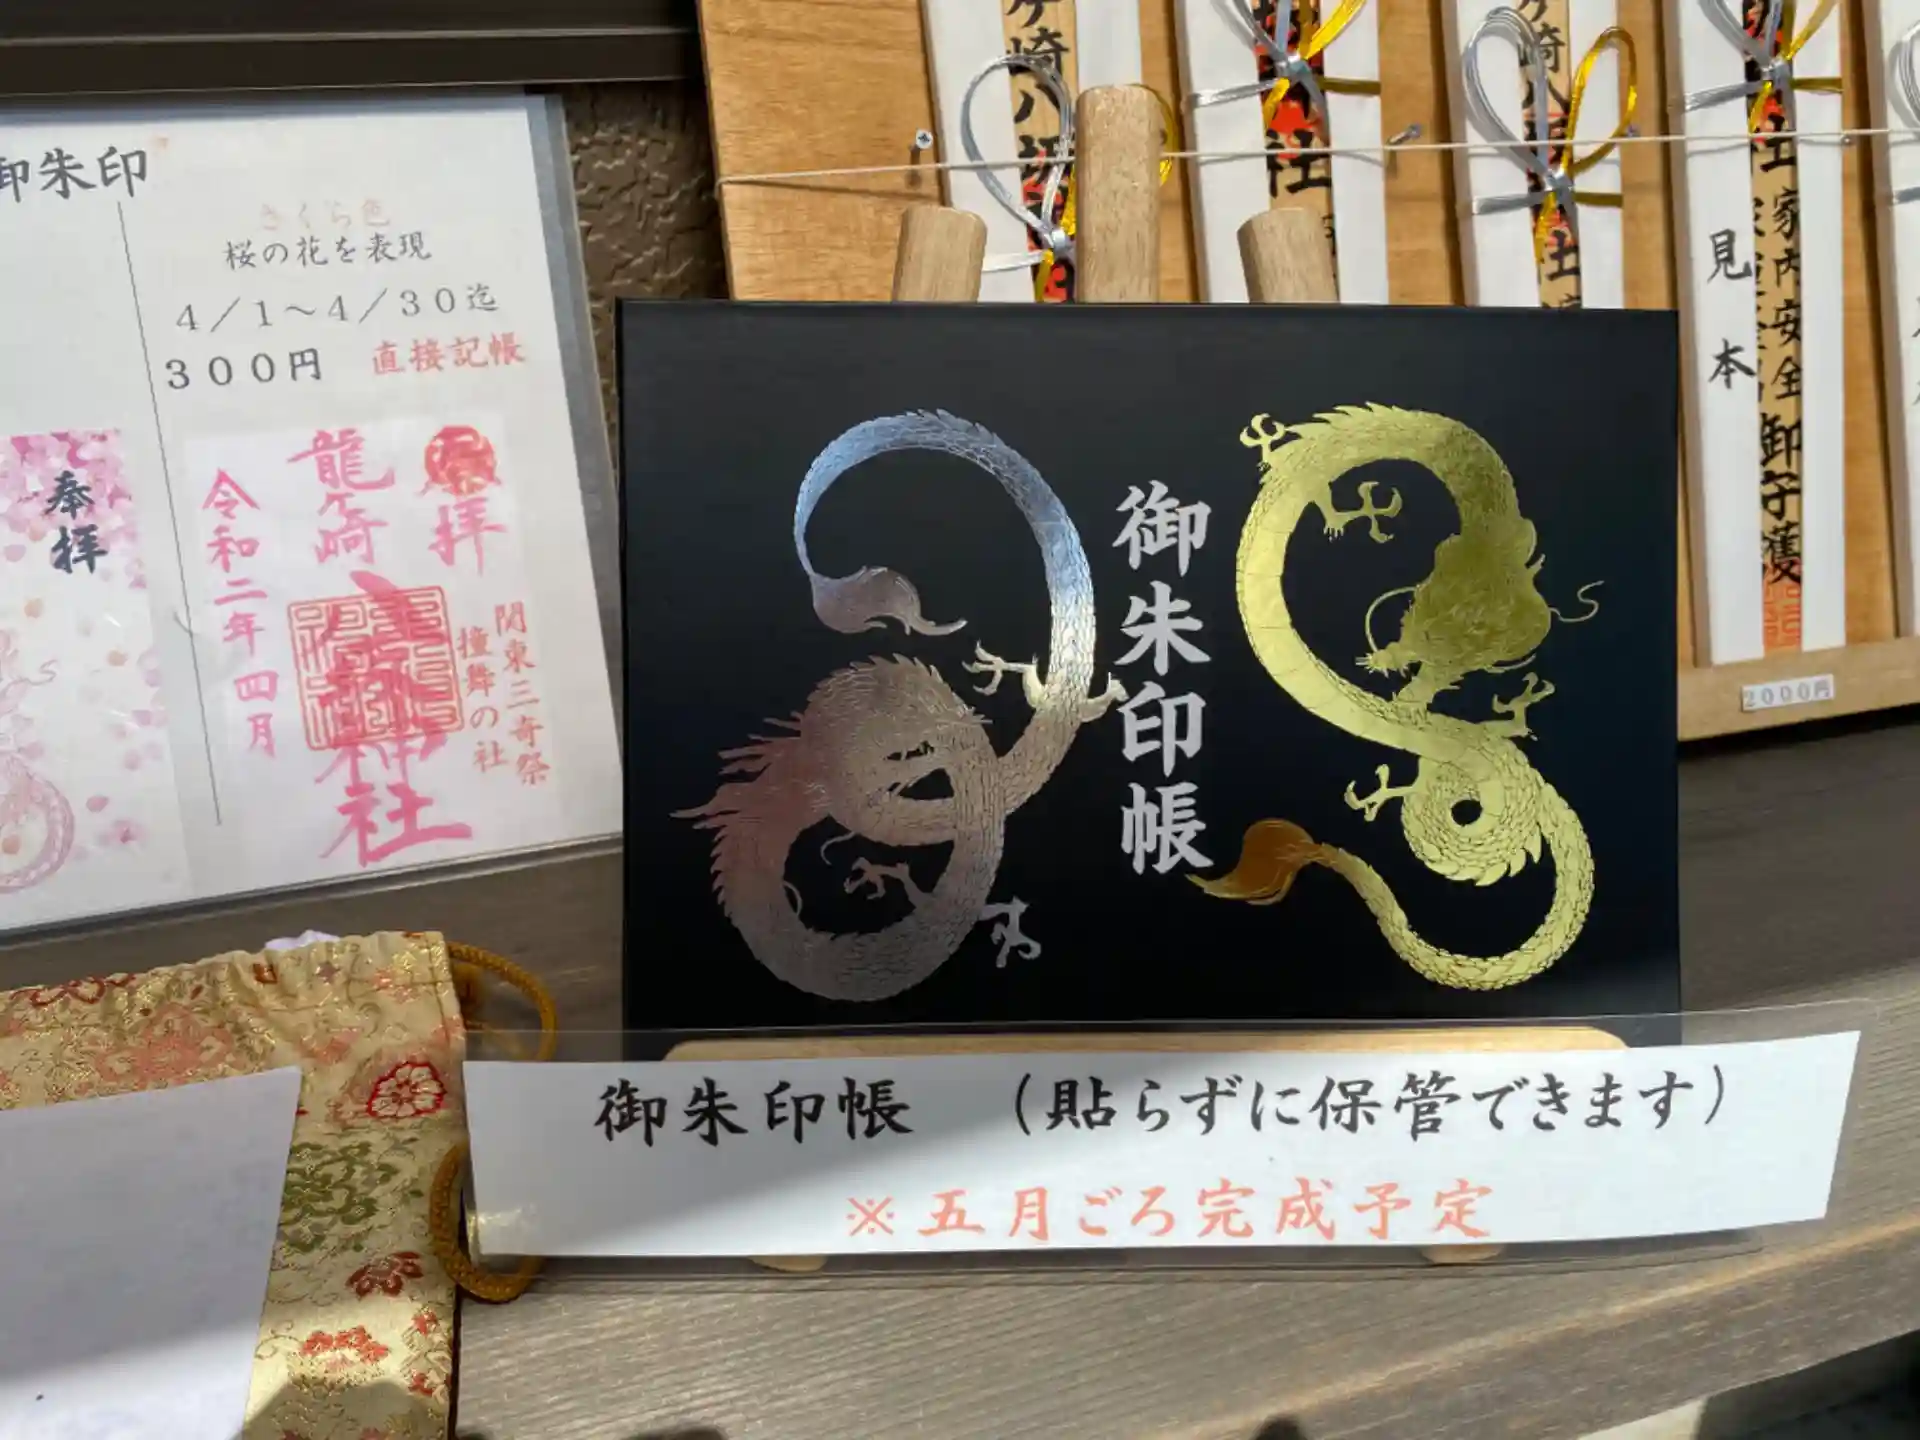 御朱印
さくら色
桜の花を表現
4/1~4/30迄
300円 直接記帳
奉拝
拝
龍ケ崎
神社
令和二年四月
関東三奇祭
撞舞の社
御朱印帳
御朱印帳 (貼らずに保管できます)
※五月ごろ完成予定
ケ崎八坂
社
ケ崎八坂
見本
家内安全御守護
2000円